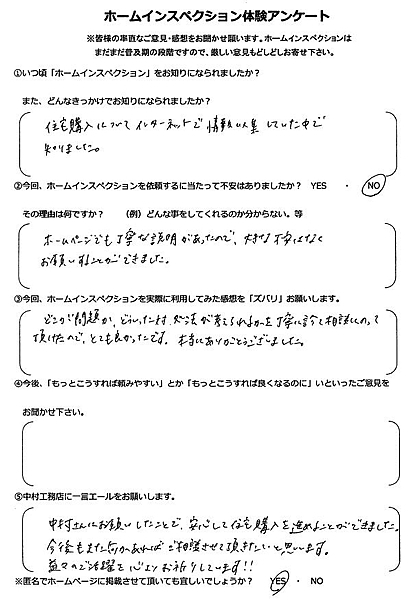 ホームインスペクション体験アンケート
※皆様の率直なご意見・感想をお聞かせ願います。ホームインスペクションは
まだまだ普及期の段階ですので、厳しい意見もどしどしお寄せ下さい。
①いつ頃「ホームインスペクション」をお知りになられましたか？
また、どんなきっかけでお知りになられましたか？
住宅購入についてインターネットで情報収集していた中で
知りました。
②今回、ホームインスペクションを依頼するに当たって不安はありましたか？ YES ・ NO
その理由は何ですか？ （例）どんな事をしてくれるのか分からない。等
ホームページでも丁寧な説明があったので、大きな不安はなく
お願いすることができました。
③今回、ホームインスペクションを実際に利用してみた感想を「ズバリ」お願いします。
どこが問題か、どういった対処法が考えられるかを丁寧に診て相談にのって
頂けたので、とても良かったです。本当にありがとうございました。
④今後、「もっとこうすれば頼みやすい」とか「もっとこうすれば良くなるのに」いといったご意見を
お聞かせ下さい。
⑤中村工務店に一言エールをお願いします。
中村さんにお願いしたことで、安心して住宅購入を進めることができました。
今後もまた何かあれば ご相談させて頂きたいと思います。
益々のご活躍を心よりお祈りしています!!
※匿名でホームページに掲載させて頂いても宜しいでしょうか？ YES ・ NO